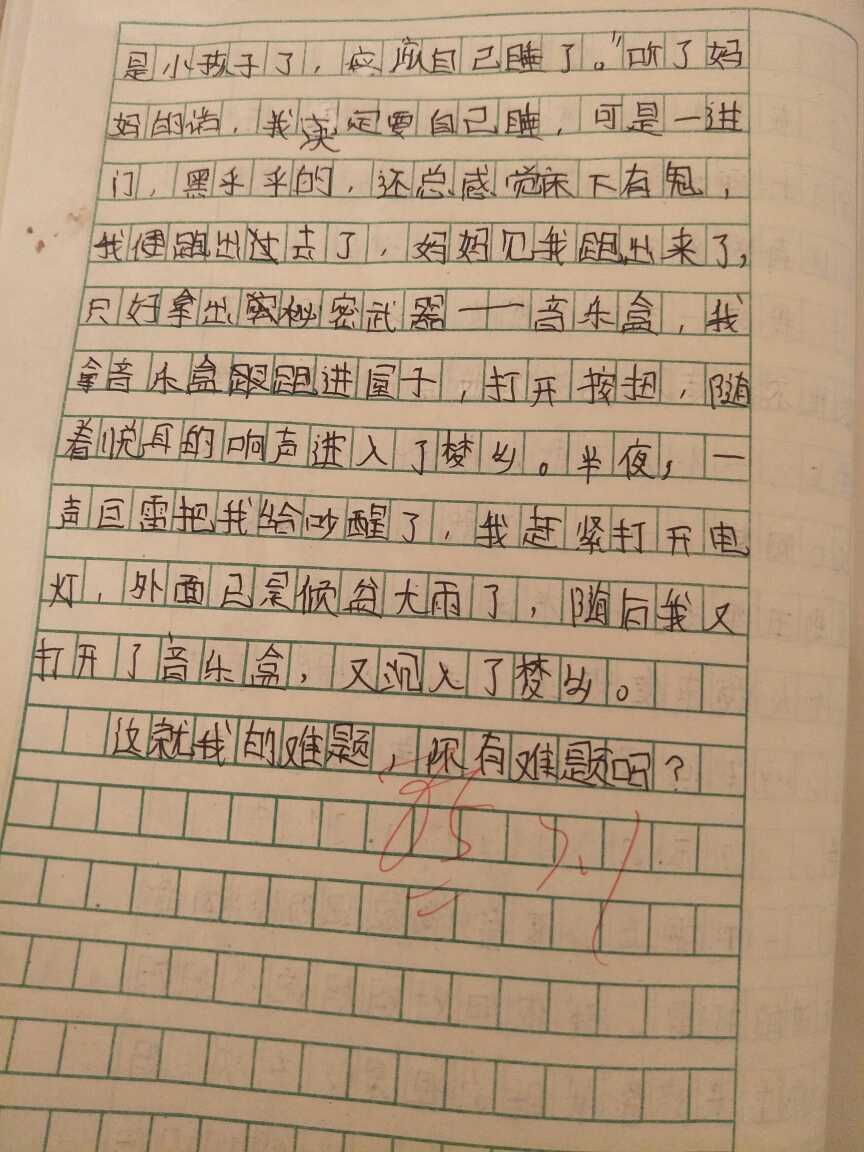 是小孩子了，应该自己睡了。"听了妈
妈的话，我决定要自己睡，可是一进
门，黑乎乎的，还总感觉床下有鬼，
我便跑出过去了，妈妈见我跑出来了，
只好拿出秘密武器——音乐盒，我
拿音乐盒跟跑进屋子，打开按扭，随
着悦耳的响声进入了梦乡。半夜，一
声巨雷把我给吵醒了，我赶紧打开电
灯，外面已是倾盆大雨了，随后我又
打开了音乐盒，又沉入了梦乡。
这就我的难题，你有难题吗？
85